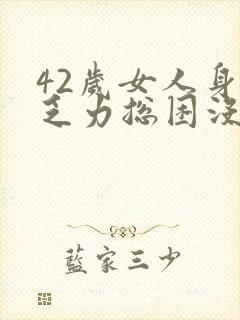 42歲女人身
乏力總困沒
藍家三少